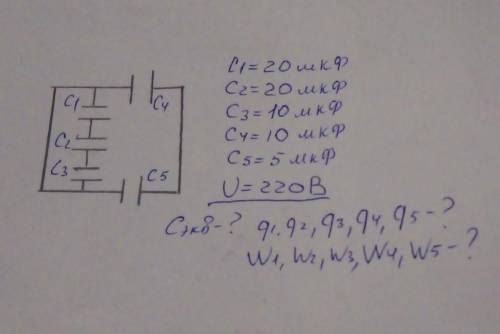 C1 C4
C2
C3 C5
C1 = 20 мкФ
C2 = 20 мкФ
C3 = 10 мкФ
C4 = 10 мкФ
C5 = 5 мкФ
U = 220В
Cэкв - ? q1, q2, q3, q4, q5 - ?
W1, W2, W3, W4, W5 - ?